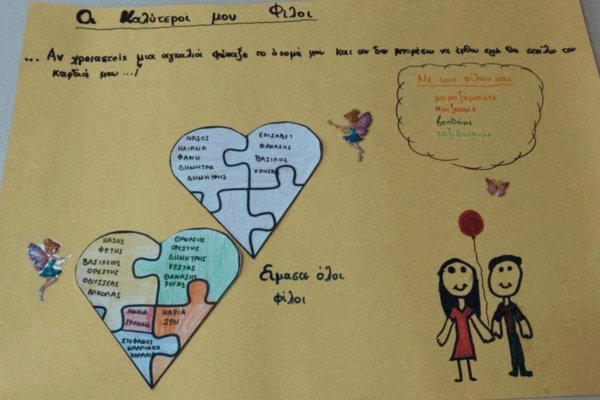 Οι Καλύτεροι μου Φίλοι
... Αν χρειαστείς μια αγκαλιά φώναξε το όνομά μου και αν δεν μπορέσω να έρθω εγώ θα στείλω την
καρδιά μου .../
Με τους φίλους μας:
μοιραζόμαστε
παίζουμε
βοηθάμε
ταξιδεύουμε
ΝΑΣΟΣ
ΗΛΙΑΝΑ
ΦΑΝΗ
ΔΗΜΗΤΡΑ
ΔΗΜΗΤΡΗΣ
ΕΛΙΣΑΒΕΤ
ΘΑΝΑΣΗΣ
ΒΑΣΙΛΗΣ
ΝΑΣΟΣ
ΦΩΤΗΣ
ΒΑΣΙΛΕΙΟΣ
ΟΡΕΣΤΗΣ
ΟΔΥΣΣΕΑΣ
ΝΙΚΟΛΑΣ
ΘΑΝΑΣΗΣ
ΟΡΕΣΤΗΣ
ΔΗΜΗΤΡΗΣ
ΚΩΣΤΑΣ
ΘΑΝΑΣΗΣ
ΡΗΓΑΣ
ΑΘΗΝΑ
ΜΑΡΙΑ
ΖΩΗ
ΣΤΕΦΑΝΟΣ
ΚΑΛΛΙΟΠΗ
ΚΟΡΑΛΙΑ
Είμαστε όλοι
φίλοι